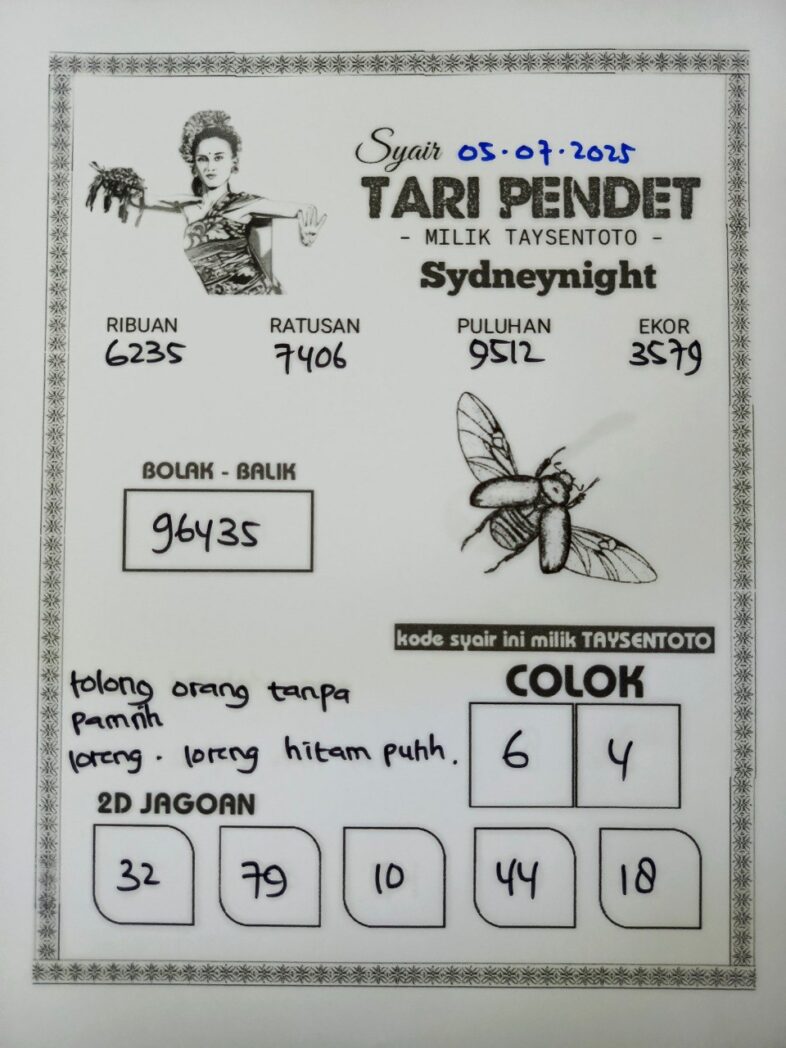 Syair 05.07.2025
TARI PENDET
- MILIK TAYSENTOTO -
Sydneynight
RIBUAN RATUSAN PULUHAN EKOR
6235 7406 9512 3579
BOLAK - BALIK
96435
kode syair ini milik TAYSENTOTO
tolong orang tanpa
pamrih
loreng . loreng hitam putih .
COLOK
6 4
2D JAGOAN
32 79 10 44 18